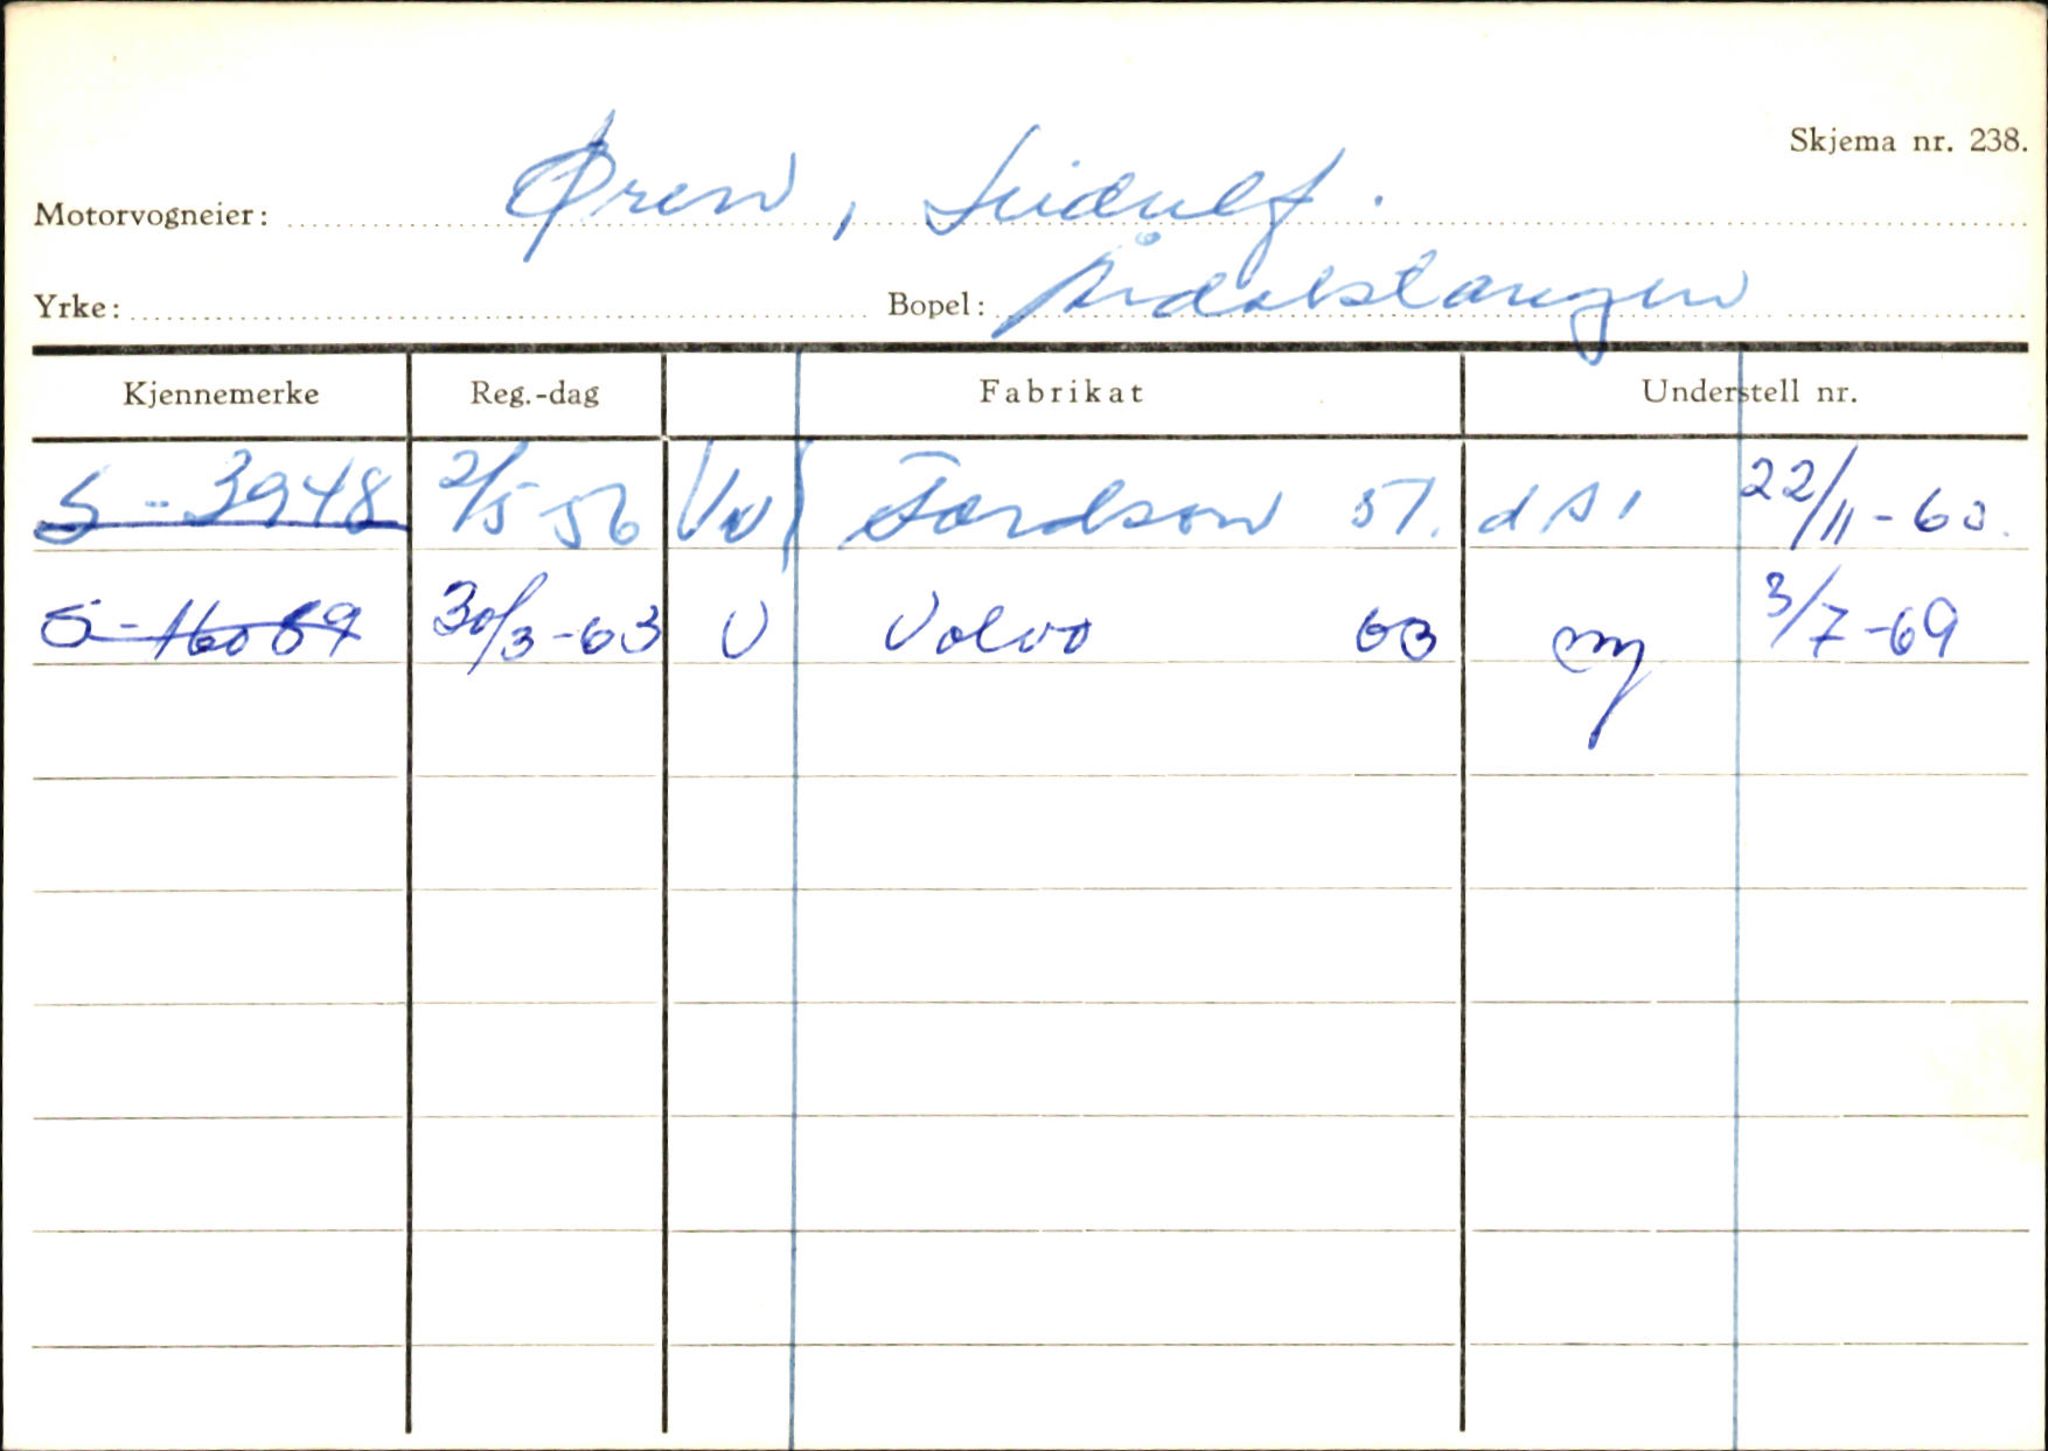 Skjema nr. 238.
Motorvogneier: Øren, Leidulf.
Yrke: Bopel: Årdalstangen
Kjennemerke Reg.-dag Fabrikat Understell nr.
S-3948 2/5 56 Vv Fordson 51. d A 1 22/11-60.
S-16089 30/3-63 V Volvo 63 ny 3/7-69